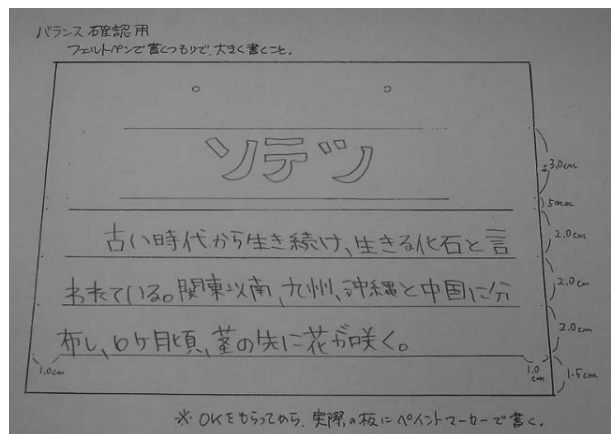 バランス確認用
フェルトペンで書くつもりで、大きく書くこと。
ソテツ
古い時代から生き続け、生きる化石と言
われている。関東以南、九州、沖縄と中国に分
布し、6ヶ月頃、茎の先に花が咲く。
3.0cm
5mm
2.0cm
2.0cm
2.0cm
1.5cm
1.0cm
1.0cm
※OKをもらってから、実際の板にペイントマーカーで書く。